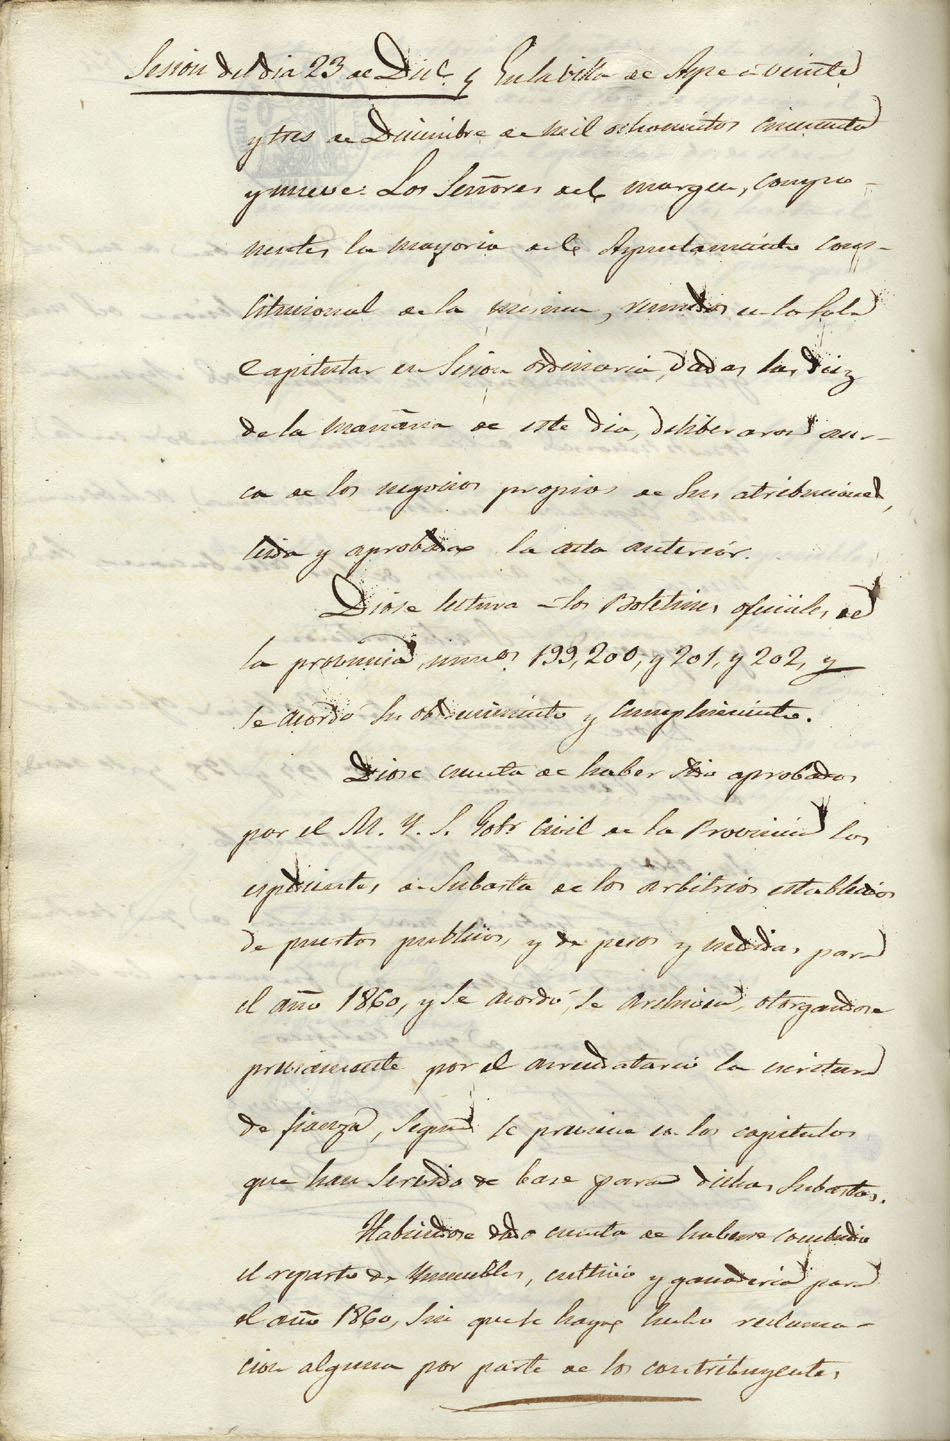 Sesion del dia 23 de Dice. y En la villa de Aspe a veinte
y tres de Diciembre de mil ochocientos cincuenta
y nueve: Los Señores del margen, compo-
nentes la mayoria del Ayuntamiento cons-
titucional de la misma, reunidos en la Sala
Capitular en Sesion ordinaria, dadas las diez
de la mañana de este dia, deliberaron acer-
ca de los negocios propios de sus atribuciones,
leida y aprobada la acta anterior.
Diose lectura a los Boletines oficiales de
la provincia, numos 199, 200, y 201, y 202, y
se acordó su obedecimiento y cumplimiento.
Diose cuenta de haber sido aprobados
por el M. Y. S. Gobr Civil de la Provincia los
espedientes de subasta de los arbitrios establecidos
de puestos publicos, y de pesos y medidas para
el año 1860, y se acordó, se archiven, otorgandose
previamente por el arrendatario la escritura
de fianza, segun se previene en los capitulos
que han servido de base para dichas subastas.
Habiendose dado cuenta de haberse concluido
el reparto de Ynmuebles, cultivo y ganaderia para
el año 1860, sin que se haya hecho reclama-
cion alguna por parte de los contribuyentes